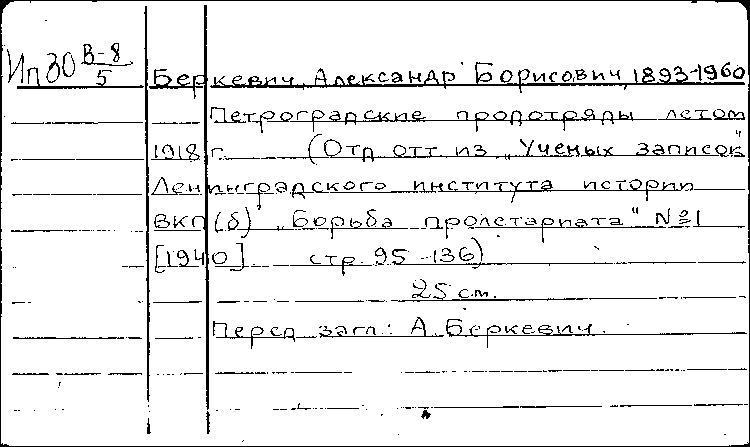 Ип30 В-8/5
Беркевич, Александр Борисович, 1893-1960
Петроградские продотряды летом
1918 г. (Отд. отт. из „Ученых записок"
Ленинградского института истории
ВКП(б) „Борьба пролетариата" №1
[1940] стр. 95-136)
25 см.
Перед загл.: А. Беркевич.